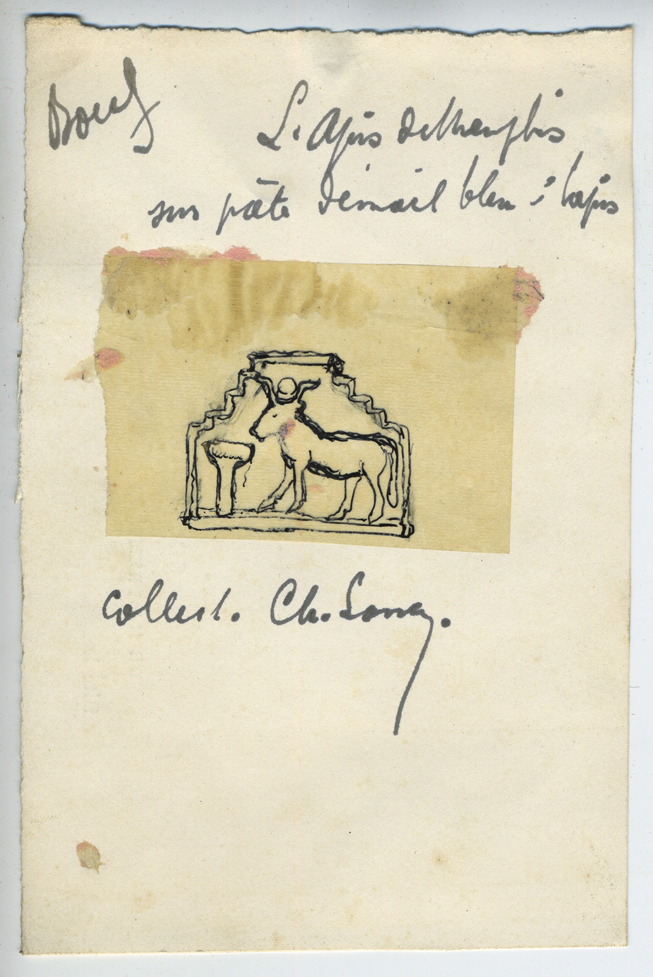 Boeuf
L'Apis de Memphis
sur pâte d'émail bleu
collect. Ch.